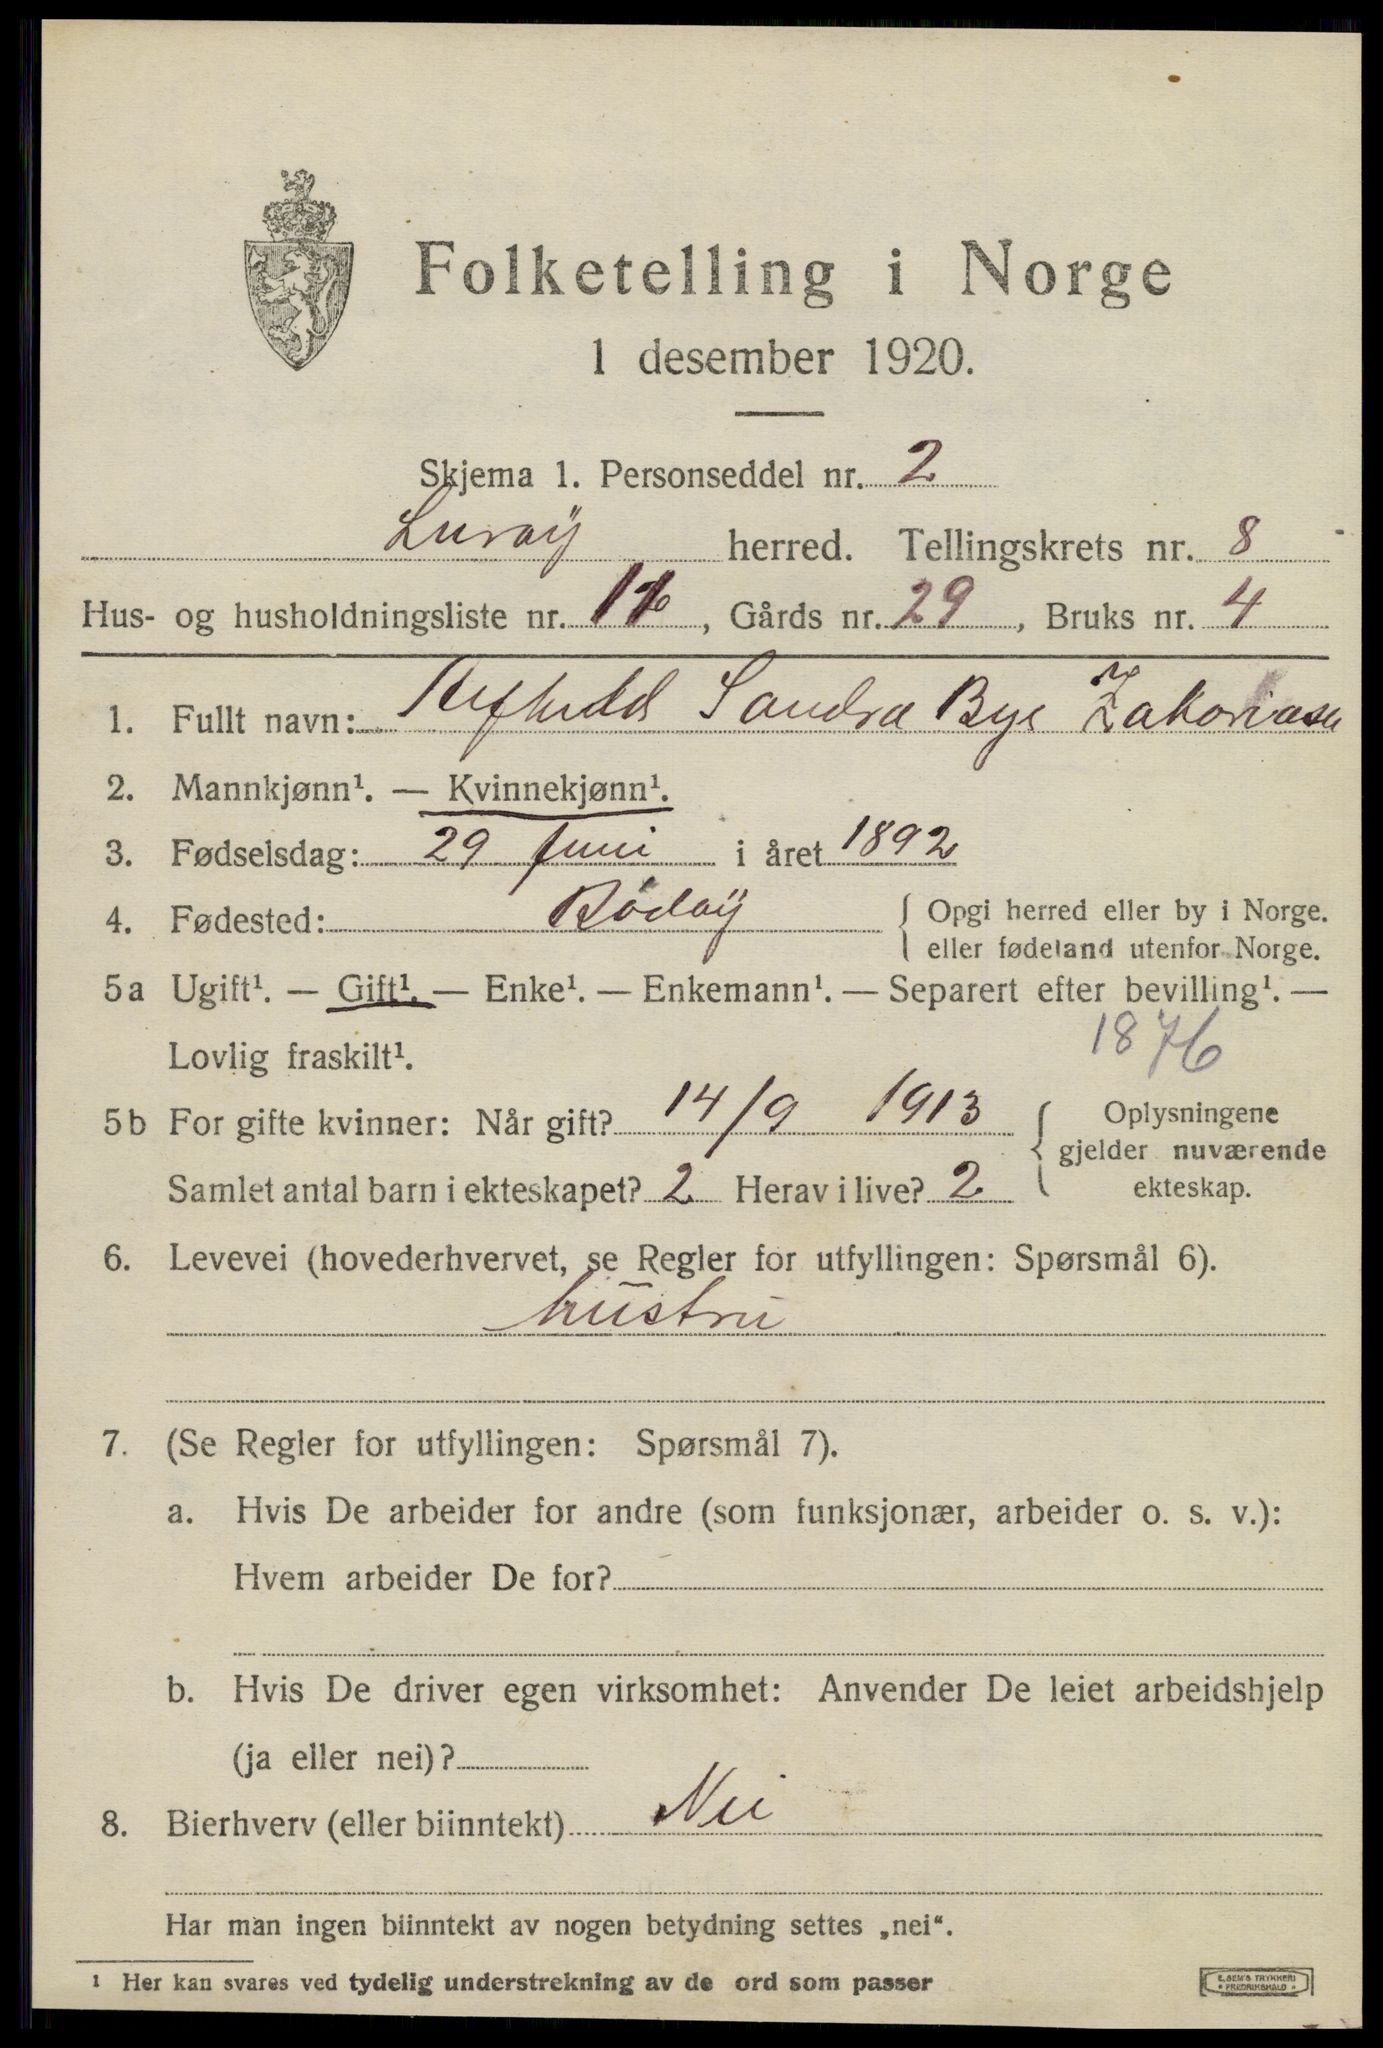 Folketelling i Norge
1 desember 1920.
Skjema 1. Personseddel nr. 2
Lurøy herred. Tellingskrets nr. 8
Hus- og husholdningsliste nr. , Gårds nr. 29, Bruks nr. 4
1. Fullt navn: Sandra Bye Zakariasen
2. Mannkjønn¹. — Kvinnekjønn¹.
3. Fødselsdag: 29 Juni i året 1892
4. Fødested: Rødøy { Opgi herred eller by i Norge.
eller fødeland utenfor Norge.
5a Ugift¹. — Gift¹. — Enke¹. — Enkemann¹. — Separert efter bevilling¹. —
1876
Lovlig fraskilt¹.
5b For gifte kvinner: Når gift? 14/9 1913 { Oplysningene
gjelder nuværende
Samlet antal barn i ekteskapet? 2 Herav i live? 2 ekteskap.
6. Levevei (hovederhvervet, se Regler for utfyllingen: Spørsmål 6).
hustru
7. (Se Regler for utfyllingen: Spørsmål 7).
a. Hvis De arbeider for andre (som funksjonær, arbeider o. s. v.):
Hvem arbeider De for?
b. Hvis De driver egen virksomhet: Anvender De leiet arbeidshjelp
(ja eller nei)?
8. Bierhverv (eller biinntekt) Nei
Har man ingen biinntekt av nogen betydning settes „nei“.
¹ Her kan svares ved tydelig understrekning av de ord som passer
E. SEM'S TRYKKERI
• FREDRIKSHALD •